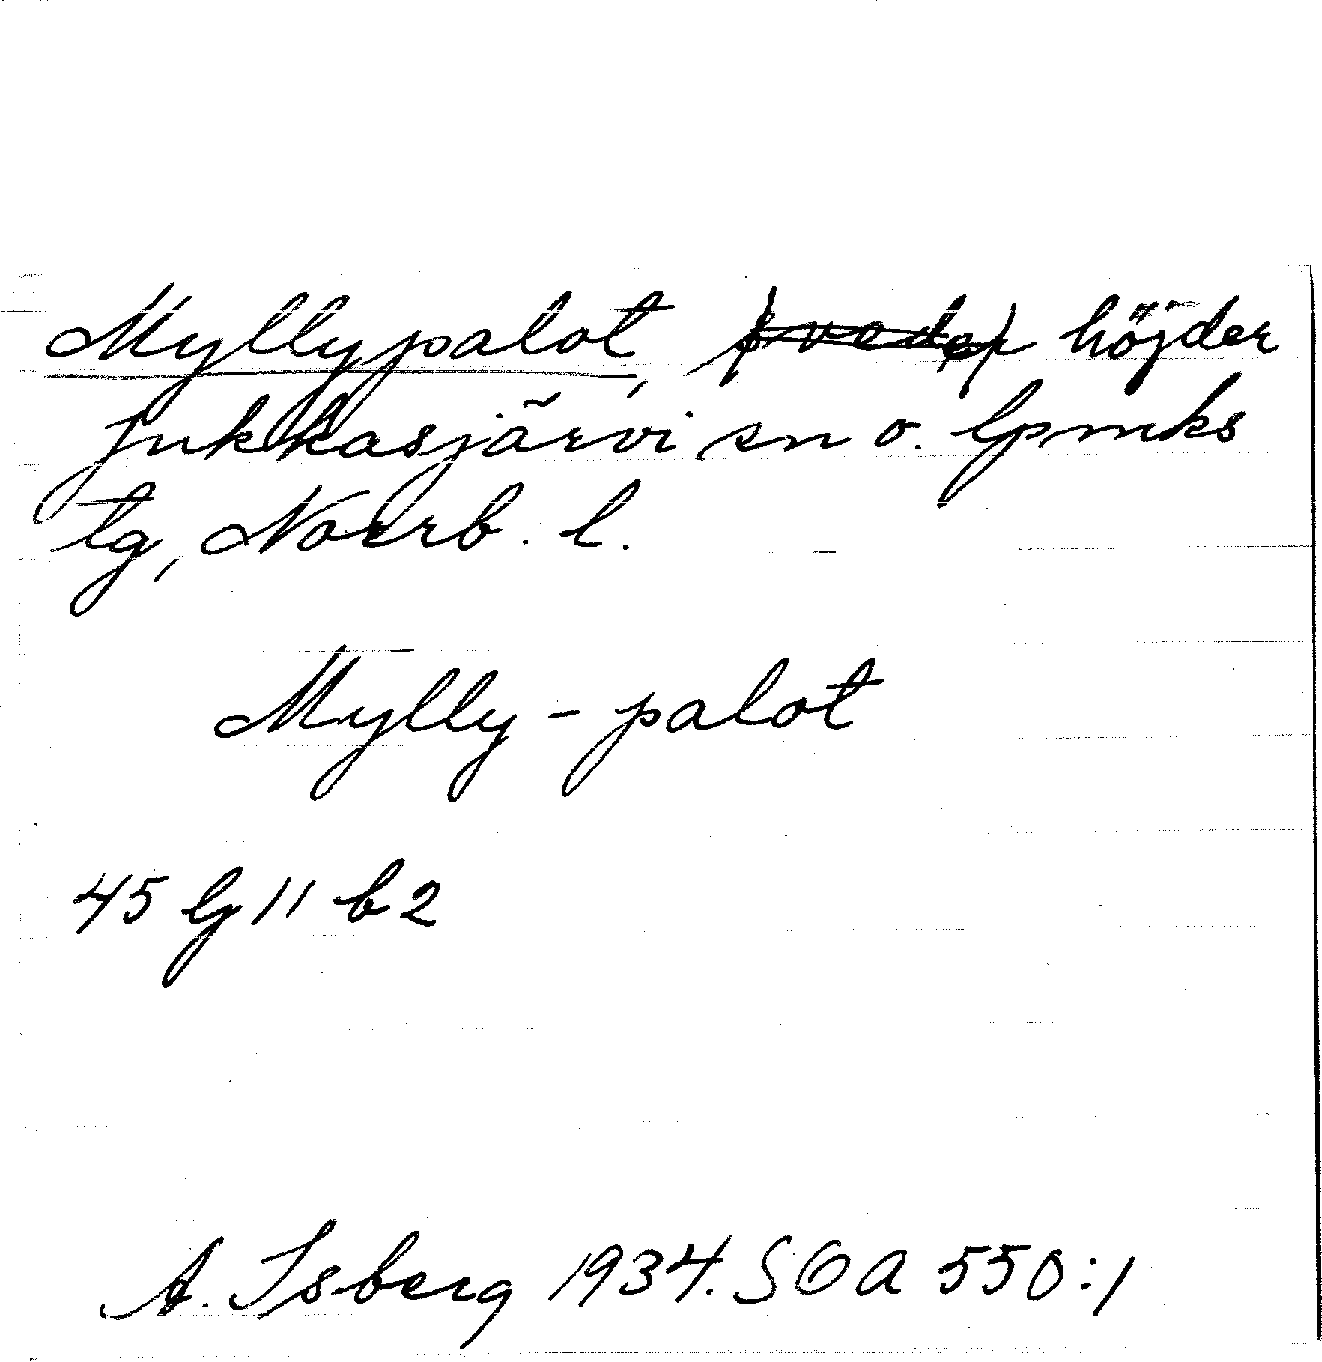 Myllypalot, höjder
Jukkasjärvi sn o. lpmks
tg, Norrb. l.
Mylly-palot
45 lg 11 b2
A. Isberg 1934. SOA 550:1